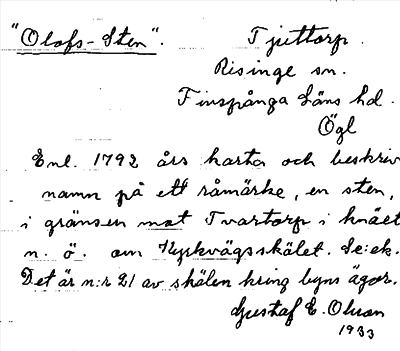 "Olofs-Sten". Tjuttorp.
Risinge sn.
Finspånga Läns hd.
Ögl
Enl. 1792 års karta och beskriv
namn på ett råmärke, en sten,
i gränsen mot Tvartorp i knäet
n. ö. om Kyrkvägsskälet. Se: ek.
Det är n:r 21 av skälen kring byns ägor.
Gustaf E. Olsson
1933